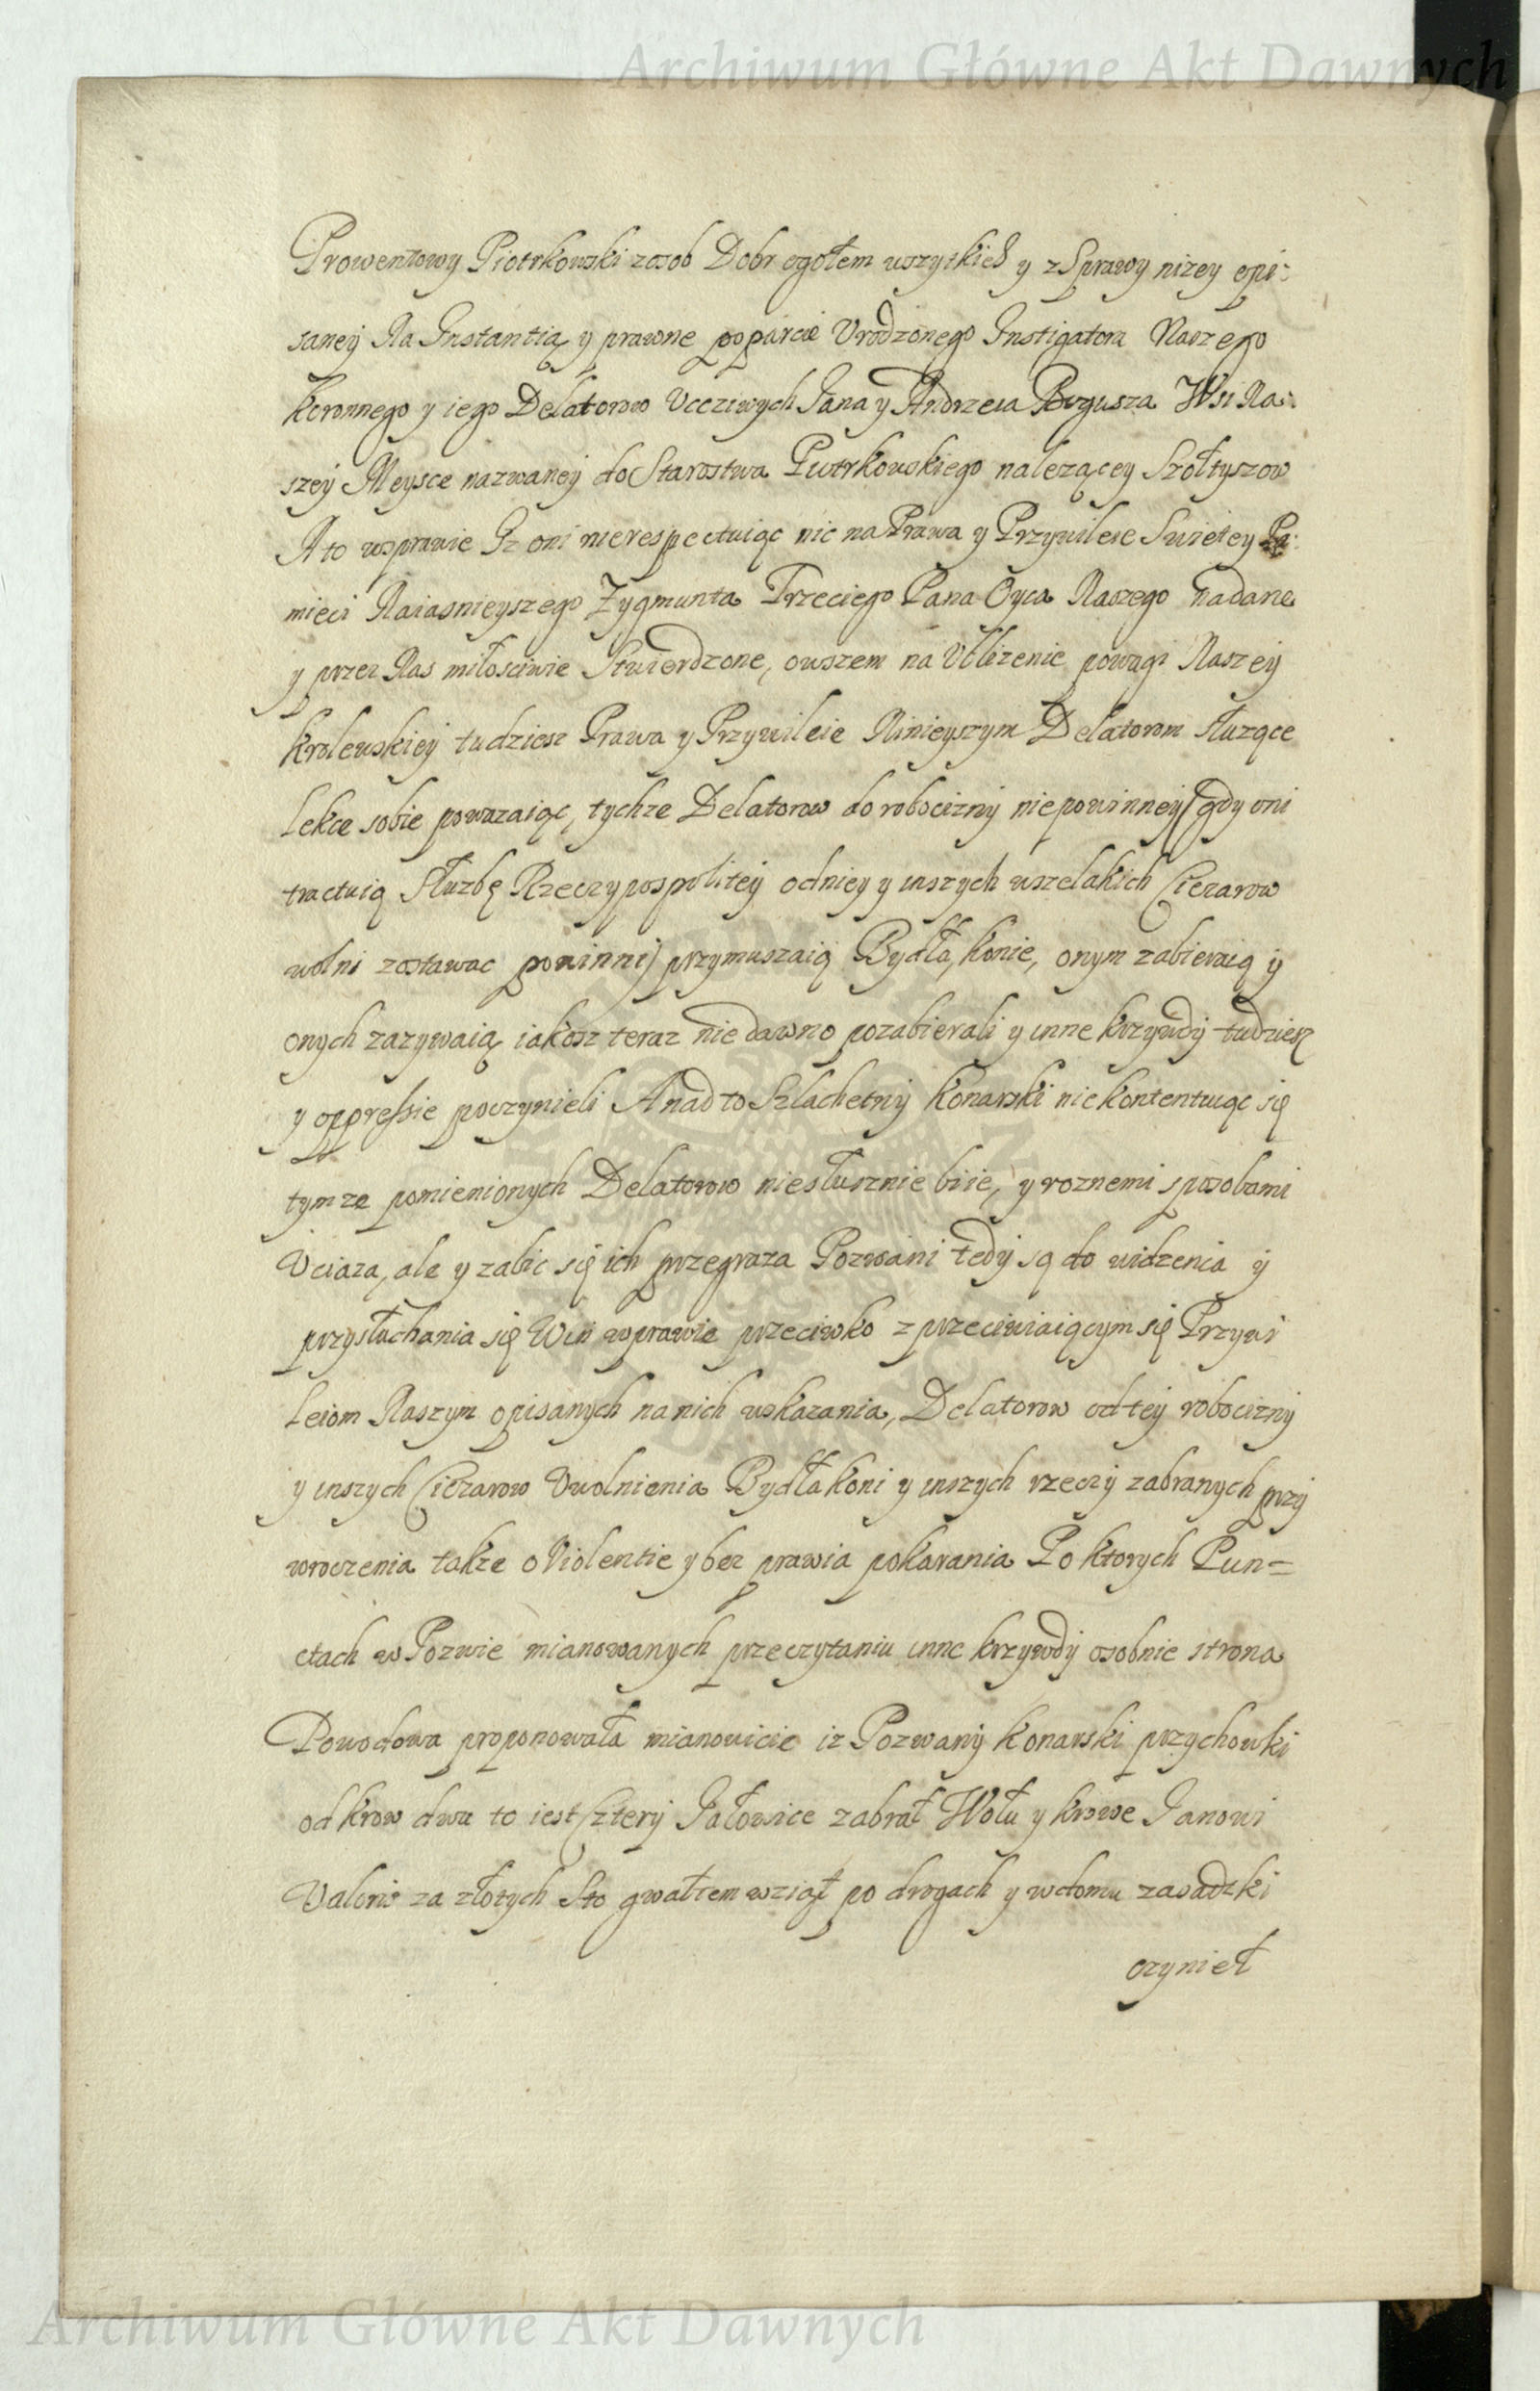 Archiwum Główne Akt Dawnych
Prowentowy Piotrkowski zosob Dobr ogołem wszytkich y zSprawy nizey opi:
saneÿ Na Instantią y prawne poparcie Vrodzonego Instigatora Naszego
Koronnego y iego Delatorow Vcciwych Jana y Andrzeia Bogusza Wsi Na:
szeÿ Meysce nazwaneÿ do Starostwa Piotrkowskiego nalezącey Szołtyszow
A to wsprawie Iz oni nierespectuiąc nic na Prawa y Przywileie Swiętey Pa:
mieci Naiasnieyszego Zygmunta Trzeciego Pana Oyca Naszego nadane
y przez Nas miłosciwie Stwierdzone, owszem na Vbliżenie powagi Naszeÿ
Krolewskieÿ tudziesz Prawa y Przywileie Ninieyszym Delatorom słuzące
lekce sobie powazaiąc, tychze Delatorow do robociznÿ niepowinneÿ (gdy oni
tractuią Słuzbę Rzeczypospoliteÿ odniey y inszych wszelakich Ciezarow
wolni zostawac powinni) przymuszaią Bydła, konie, onym zabieraią ÿ
onych zazywaią iakosz teraz nie dawno pozabierali y inne krzywdÿ tudziesz
y oppressie poczynieli A nad to Szlachetnÿ Konarski nie kontentuiąc się
tym ze pomienionych Delatorow niesłusznie biie, y roznemi sposobami
Vciaza, ale y zabic się ich przegraza Pozwani tedÿ są do widzenia ÿ
przysłuchania się Win wprawie przeciwko zprzeciwiaiącym się Przywi
leiom Naszym opisanych na nich wskazania, Delatorow od teÿ robociznÿ
y inszych Ciezarow Vwolnienia Bydła koni y inszych rzeczÿ zabranych przÿ
wroczenia takze o Violentie y bez prawia pokarania Po ktorych Pun=
ctach w Pozwie mianowanych przeczytaniu inne krzywdÿ osobnie strona
Powodowa proponowała mianowicie iz Pozwanÿ Konarski przychowki
od krow dwu to iest Czterÿ Jałowice zabrał Wołu y krowe Janowi
Valoris za złotych Sto gwałtem wziął po drogach y wdomu zasadzki
czynieł
Archiwum Główne Akt Dawnych